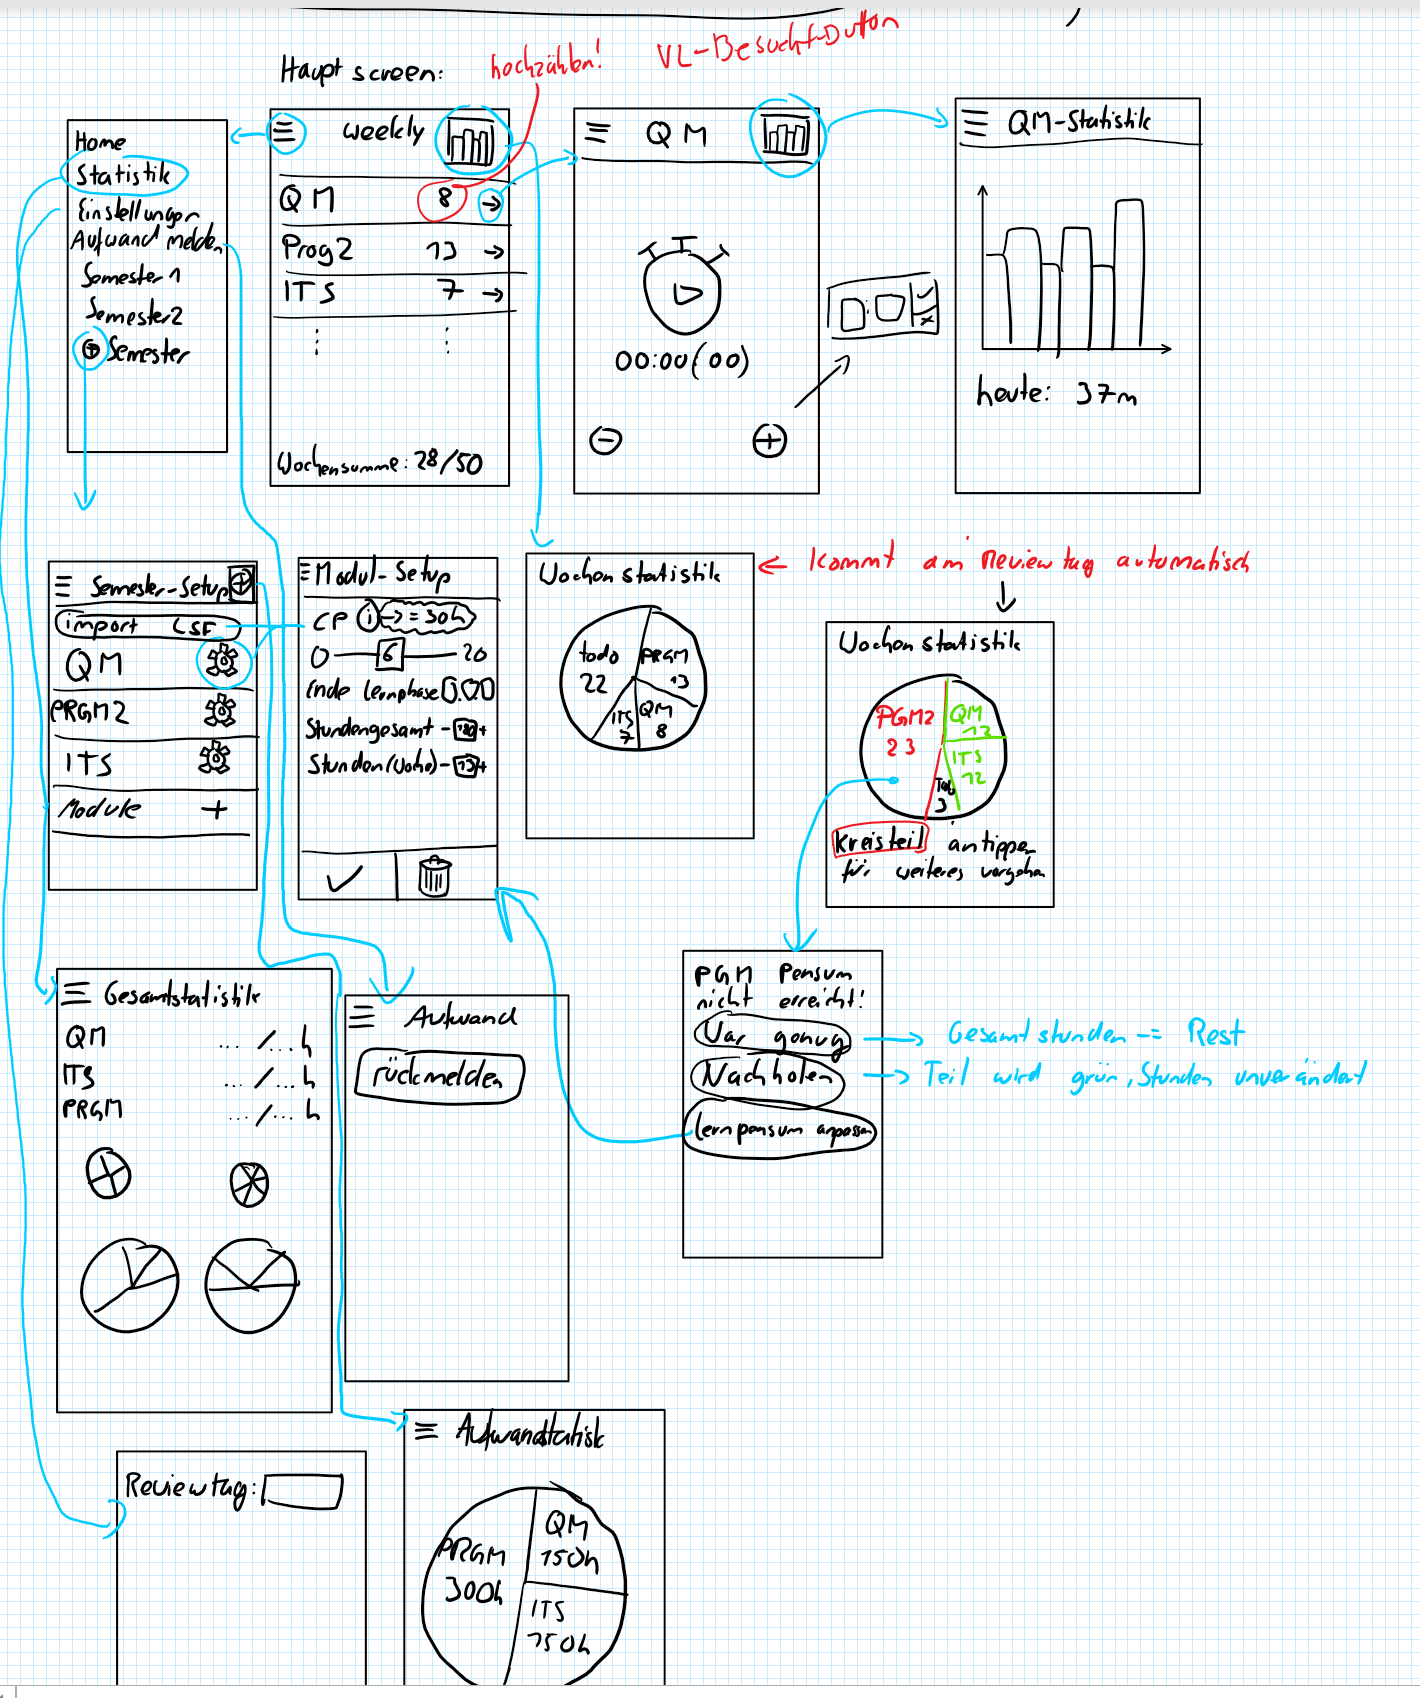 Hauptscreen:
hochzählen!
VL-Besucht-Button
Home
Statistik
Einstellungen
Aufwand melden
Semester 1
Semester 2
+ Semester
weekly
QM 8 →
Prog2 13 →
ITS 7 →
Wochensumme: 28/50
QM
00:00(00)
QM-Statistik
heute: 37m
Semester-Setup
import LSF
QM
PRGM2
ITS
Module +
Modul-Setup
CP i → = 30h
0 6 20
Ende Lernphase
Stundengesamt - +
Stunden (Woche) - +
Wochenstatistik
todo 22
PRGM 13
ITS 7
QM 8
← Kommt am Reviewtag automatisch
Wochenstatistik
PGM2 23
QM 12
ITS 12
3
Kreisteil antippen
für weiteres vorgehen
PGM Pensum
nicht erreicht!
War genug
→ Gesamtstunden -= Rest
Nachholen
→ Teil wird grün, Stunden unverändert
Lernpensum anpassen
Gesamtstatistik
QM ... /... h
ITS ... /... h
PRGM ... /... h
Aufwand
rückmelden
Reviewtag:
Aufwandstatistik
PRGM 300h
QM 150h
ITS 150h